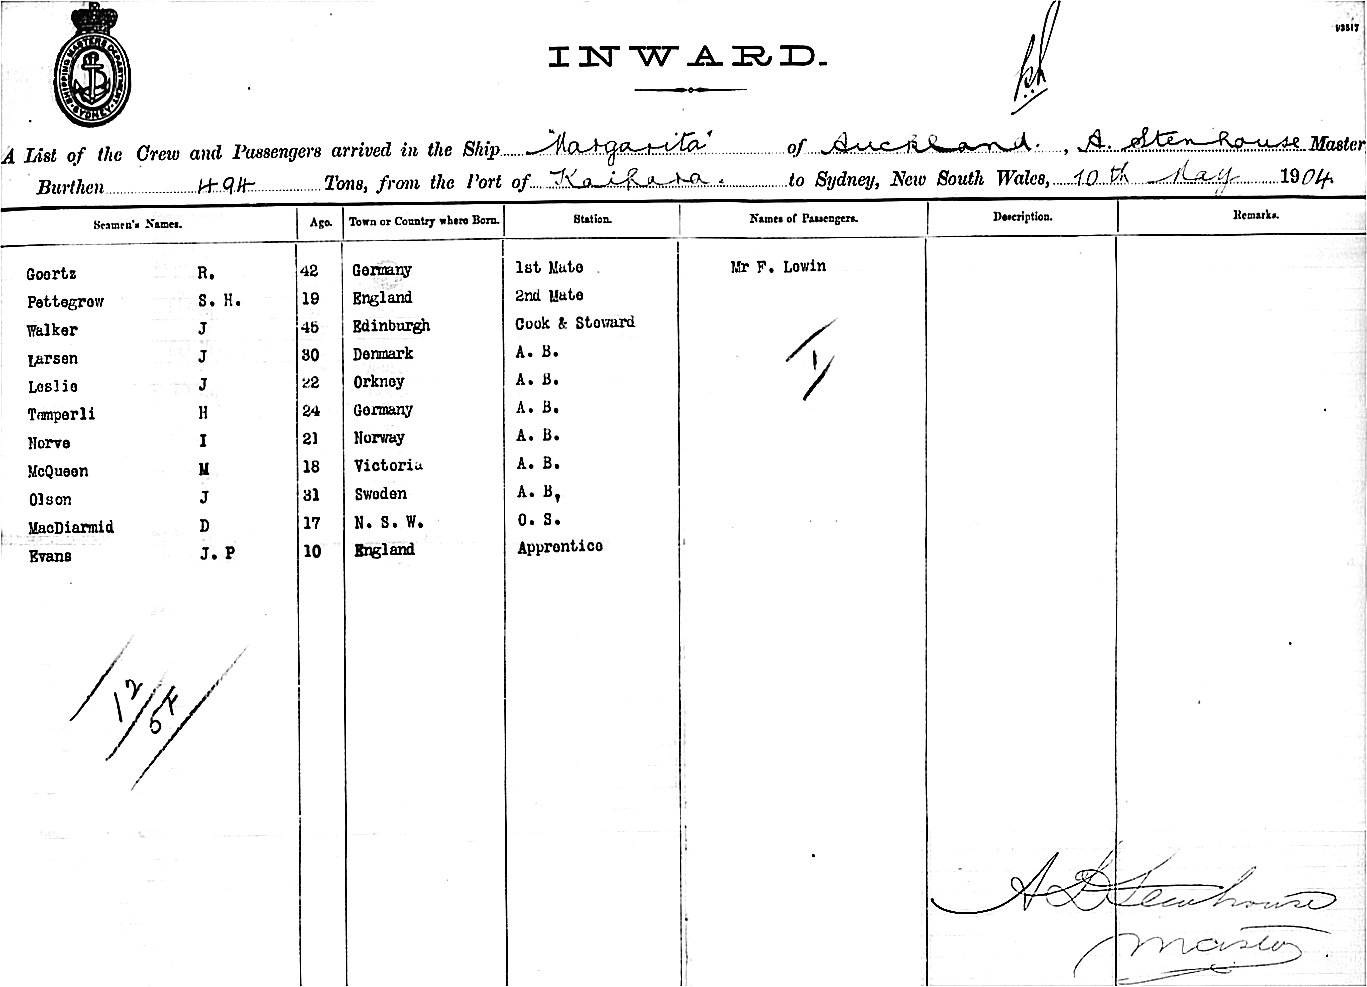 93517
SHIPPING MASTERS DEPARTMENT SYDNEY
INWARD.
A List of the Crew and Passengers arrived in the Ship "Margarita" of Auckland. , A. Stenhouse Master
Burthen 494 Tons, from the Port of Kaipara. to Sydney, New South Wales, 10th May 1904
Seamen's Names. Age. Town or Country where Born. Station. Names of Passengers. Description. Remarks.
Goertz R. 42 Germany 1st Mate Mr F. Lowin
Pettegrew S. H. 19 England 2nd Mate
Walker J 45 Edinburgh Cook & Steward
Larsen J 30 Denmark A. B.
Leslie J 22 Orkney A. B.
1
Tamperli H 24 Germany A. B.
Norve I 21 Norway A. B.
McQueen M 18 Victoria A. B.
Olson J 31 Sweden A. B,
MacDiarmid D 17 N. S. W. O. S.
Evans J. P 10 England Apprentice
12
A D Stenhouse
Master